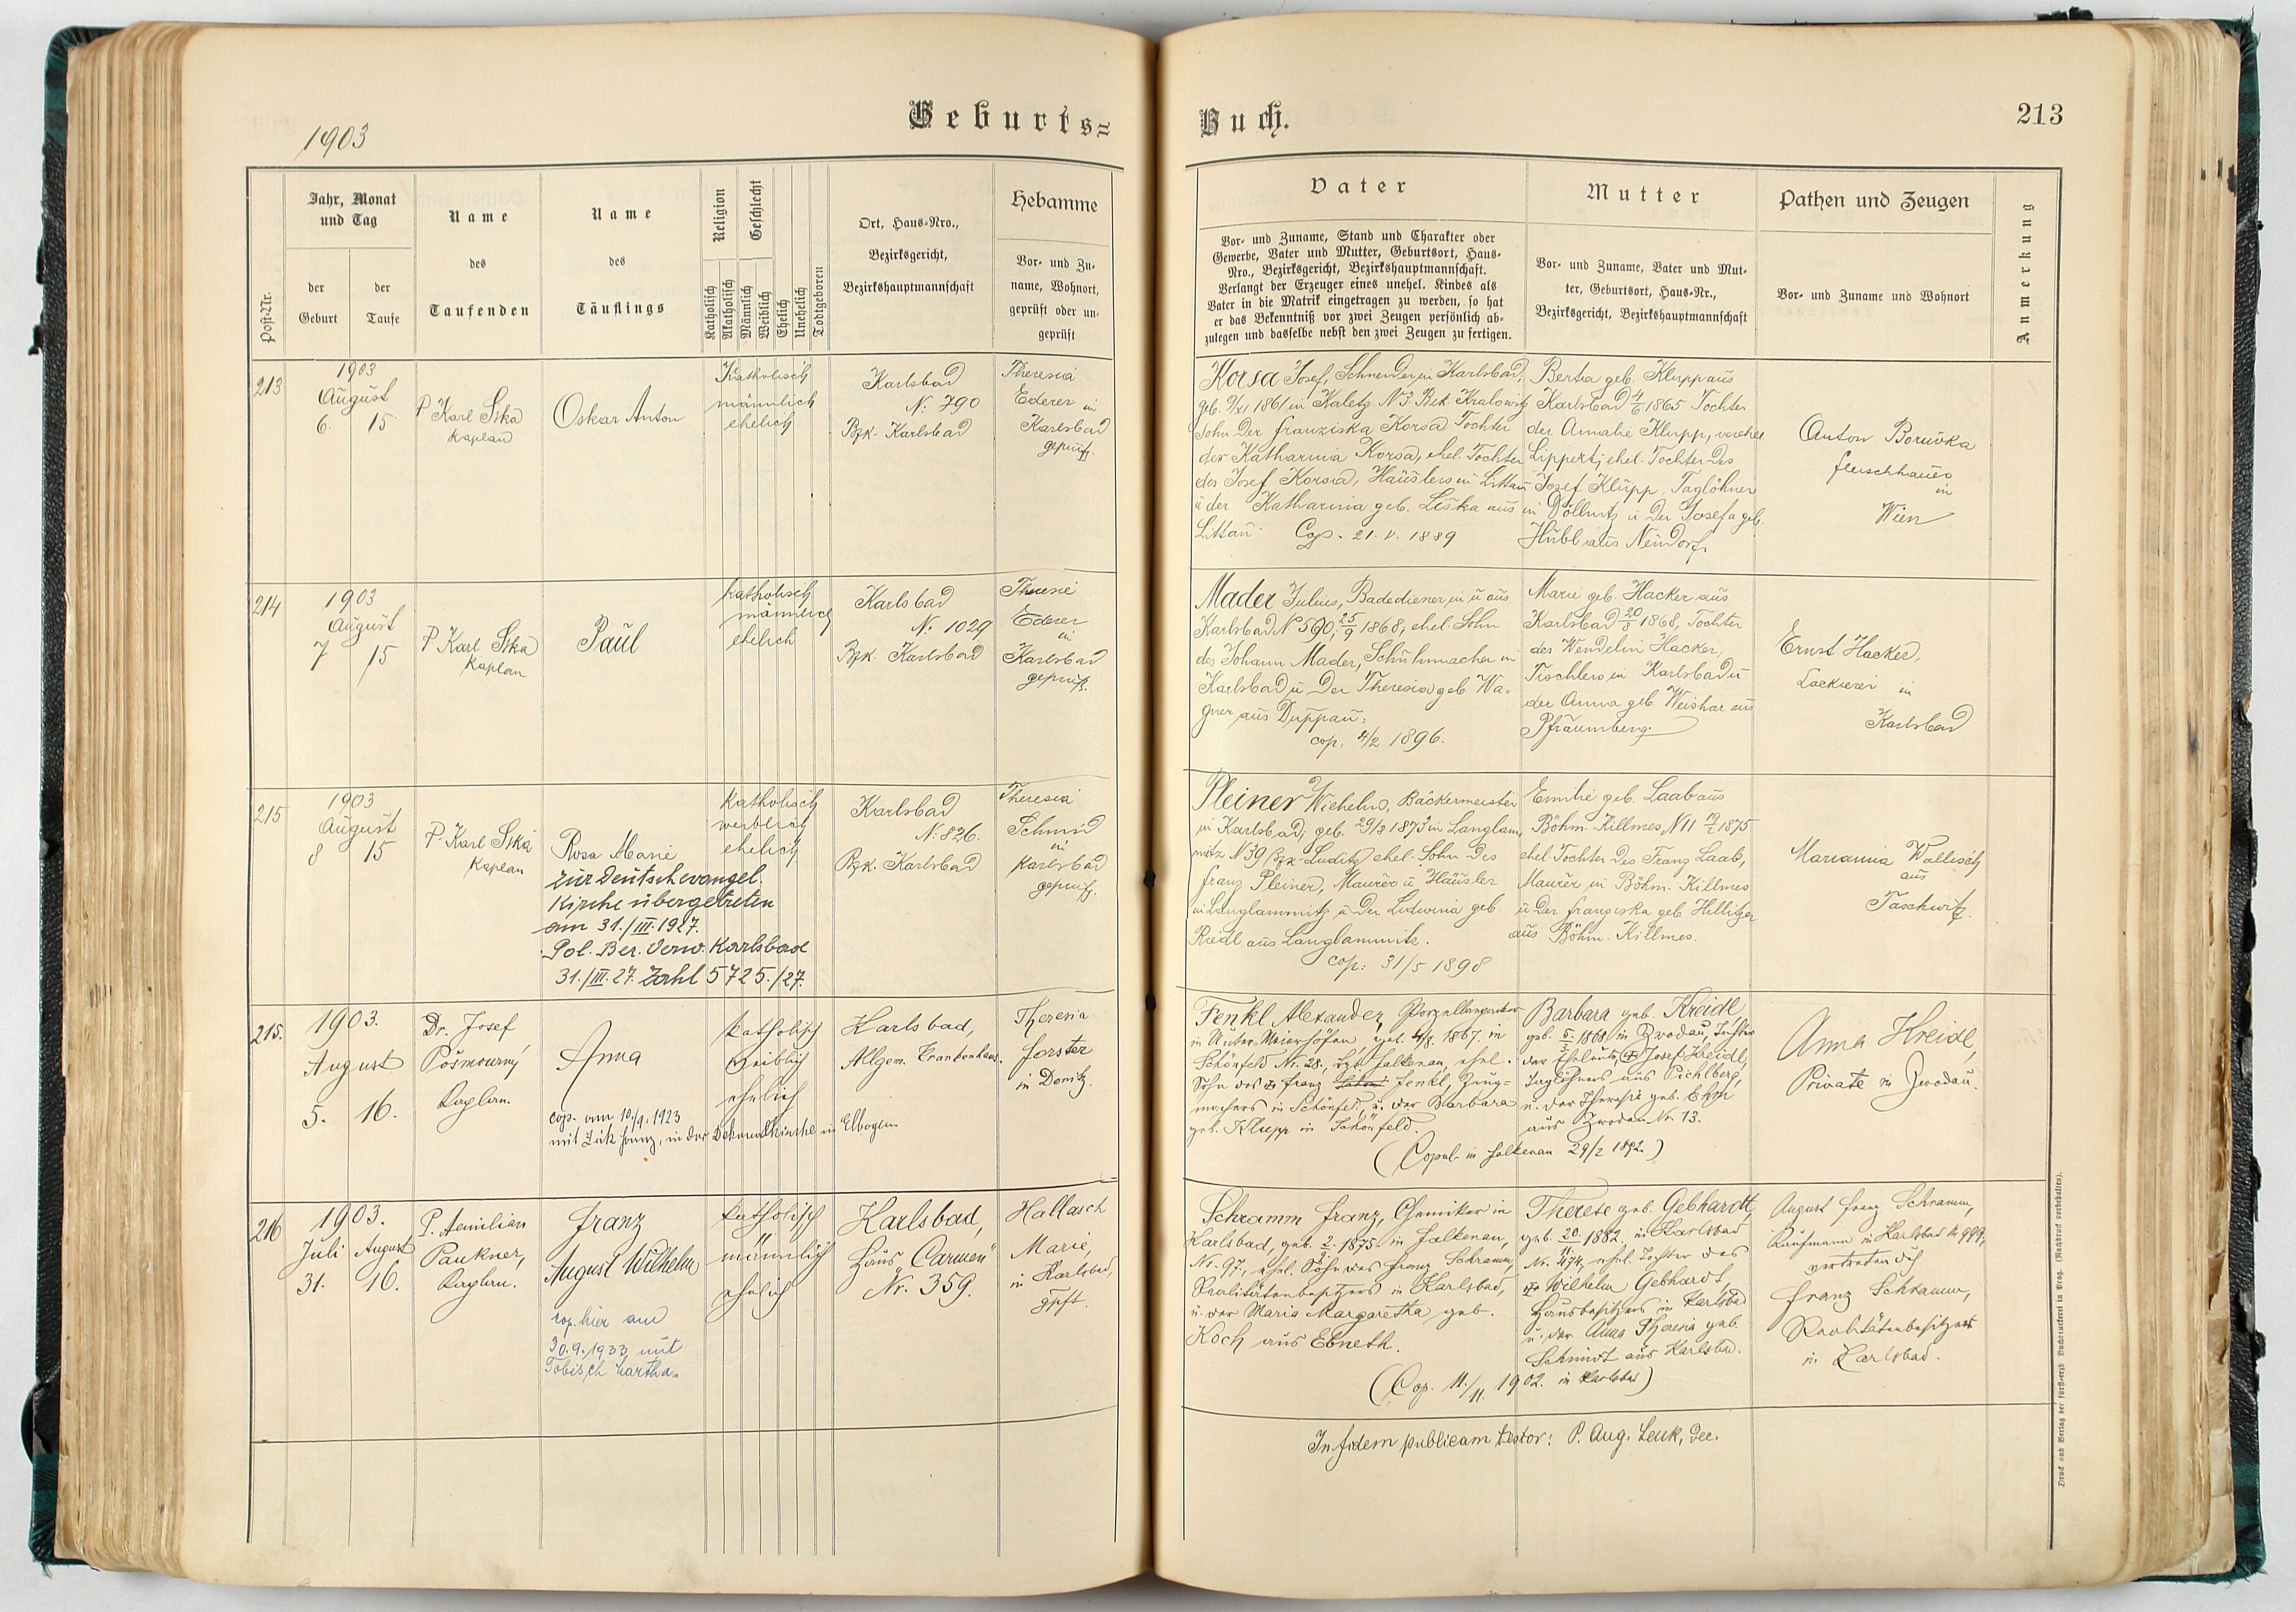 1903
Geburts=
Buch.
213
Post-Nr.
Jahr, Monat
und Tag
der
Geburt
der
Taufe
Name
des
Taufenden
Name
des
Täuflings
Religion
Geschlecht
Katholisch
Akatholisch
Männlich
Weiblich
Ehelich
Unehelich
Todtgeboren
Ort, Haus-Nro.,
Bezirksgericht,
Bezirkshauptmannschaft
Hebamme
Vor- und Zu-
name, Wohnort,
geprüft oder un-
geprüft
Vater
Vor- und Zuname, Stand und Charakter oder
Gewerbe, Vater und Mutter, Geburtsort, Haus-
Nro., Bezirksgericht, Bezirkshauptmannschaft.
Verlangt der Erzeuger eines unehel. Kindes als
Vater in die Matrik eingetragen zu werden, so hat
er das Bekenntniß vor zwei Zeugen persönlich ab-
zulegen und dasselbe nebst den zwei Zeugen zu fertigen.
Mutter
Vor- und Zuname, Vater und Mut-
ter, Geburtsort, Haus-Nr.,
Bezirksgericht, Bezirkshauptmannschaft
Pathen und Zeugen
Vor- und Zuname und Wohnort
Anmerkung
213
1903
August
6. 15.
P Karl Sika
Kaplan
Oskar Anton
Katholisch
männlich
ehelich
Karlsbad
N: 790
Bzk. Karlsbad
Theresia
Ederer in
Karlsbad
geprüft.
Korsa Josef, Schneider in Karlsbad,
geb. 9/XI 1861 in Kaletz N 3. Bzk. Kralowitz
Sohn der Franziska Korsa Tochter
der Katharina Korsa, ehel. Tochter
des Josef Korsa, Häuslers in Littau
u der Katharina geb. Liška aus
Littau. Cop. 21. V. 1889
Berta geb. Klupp aus
Karlsbad 4/6 1865 Tochter
der Amalie Klupp, verehel.
Lippert, ehel. Tochter des
Josef Klupp, Taglöhner
in Döllnitz u der Josefa geb.
Hübl aus Neudorf.
Anton Boruvka
Fleischhauer
in
Wien
214
1903
August
7 15
P Karl Sika
Kaplan
Paul
katholisch
männlich
ehelich
Karlsbad
N: 1029
Bzk. Karlsbad
Theresie
Ederer
in
Karlsbad
geprüft.
Mader Julius, Badediener in u aus
Karlsbad N 590, 25/9 1868, ehel. Sohn
des Johann Mader, Schuhmacher in
Karlsbad u der Theresia geb. Wa-
gner aus Duppau:
cop. 4/2 1896.
Marie geb. Hacker aus
Karlsbad 20/8 1868, Tochter
des Wendelin Hacker,
Tischlers in Karlsbad u
der Anna geb. Weishar aus
Pfraumberg.
Ernst Hacker,
Lackierer in
Karlsbad
215
1903
August
8 15
P. Karl Sika
Kaplan
Rosa Marie
zur deutschevangel.
Kirche übergetreten
am 31./III.1927.
Pol. Bez. Verw. Karlsbad
31./III.27. Zahl 5725./27.
katholisch
weiblich
ehelich
Karlsbad
N: 826.
Bzk. Karlsbad
Theresia
Schmid
in
Karlsbad
geprüft.
Pleiner Wilhelm, Bäckermeister
in Karlsbad; geb. 29/3 1873 in Langlam-
mitz N 39 Bzk. Luditz ehel. Sohn des
Franz Pleiner, Maurer u Häusler
in Langlammitz u der Ludwina geb.
Riedl aus Langlammitz.
cop: 31/5 1898
Emilie geb. Laab aus
Böhm. Killmes, N 11 1875
ehel. Tochter des Franz Laab,
Maurer in Böhm. Killmes
u der Franziska geb. Hillitzer
aus Böhm. Killmes.
Marianna Wallisch
aus
Taschwitz.
215.
1903.
August
5. 16.
Dr. Josef
Pošmourný
Kaplan.
Anna
cop. am 10./9. 1923
mit Lük Franz, in der Dekanalkirche in Elbogen
katholisch
weiblich
ehelich
Karlsbad,
Allgem. Krankenhaus.
Theresia
Forster
in Donitz.
Fenkl Alexander, Porzellanmaler
in Unter-Meierhöfen, geb. 4/8. 1867. in
Schönfeld Nr. 28., Bzk. Falkenau, ehel.
Sohn des Franz Fenkl, Zeug-
machers in Schönfeld, u. der Barbara
geb. Klupp in Schönfeld.
(Copul. in Falkenau 29/2 1892.)
Barbara geb. Kreidl,
geb. 5/3. 1868. in Zwodau, Tochter
der Eheleute Josef Kreidl,
Taglöhners aus Pichlberg,
u. der Theresia geb. Ehm
aus Zwodau Nr. 13.
Anna Kreidl,
Private in Zwodau.
216
1903.
Juli August
31. 16.
P. Aemilian
Paukner,
Kaplan.
Franz
August Wilhelm
cop. hier am
30.9.1933 mit
Tobisch Martha.
katholisch
männlich
ehelich
Karlsbad,
Haus „Carmen"
Nr. 359.
Hallasch
Marie,
in Karlsbad,
gpft.
Schramm Franz, Chemiker in
Karlsbad, geb. 2/2. 1875. in Falkenau,
Nr. 97., ehel. Sohn des Franz Schramm,
Realitätenbesitzers in Karlsbad,
u. der Maria Margaretha geb.
Koch aus Ebneth.
(Cop. 11./11. 1902. in Karlsbad)
Therese geb. Gebhardt,
geb. 20/11. 1882. in Karlsbad
Nr. 474, ehel. Tochter des
Wilhelm Gebhardt,
Hausbesitzers in Karlsbad
u. der Anna Theresia geb.
Schmidt aus Karlsbad.
August Franz Schramm,
Kaufmann in Karlsbad N. 999,
vertreten dch
Franz Schramm,
Realitätenbesitzer
in Karlsbad.
In fidem publicam testor: P. Aug. Leuk, Dec.
Druck und Verlag der fürst-erzb. Buchdruckerei in Prag. (Nachdruck vorbehalten).